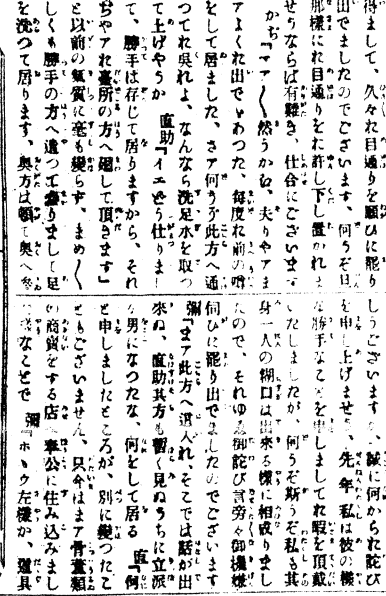 得まして、久々れ目通りを願ひに罷り
出でましたのでございます、何うぞ旦
那樣にれ目通りをれ許し下し置かれま
せうならば有難き、仕合にございます
かぢ『マア〳〵然うかね、夫りやアま
アよくれ出でゞあつた、毎度れ前の噂
をして居ました、さア何うぞ此方へ通
つてれ呉れよ、なんなら洗足水を取つ
て上げやうか　直助『イエどう仕りまし
て、勝手は存じて居りますから、それ
ぢやアれ臺所の方へ廻して頂きます』
と以前の氣質に毫も變らず、まめ〳〵
しくも勝手の方へ遶つて參りまして足
を洗つて居ります、奧方は頓て奧へ參
しうございます、誠に何かられ詫び
を申し上げませう、先年私は彼の樣
な勝手なことを申しましてれ暇を頂戴
いたしましたが、何うぞ斯うぞ私も其
身一人の糊口は出來る樣に相成りまし
たので、それゆゑ御詫び言旁々御機嫌
伺ひに罷り出でましたのでございます
彌『まア此方へ這入れ、そこでは話が出
來ぬ、直助其方も暫く見ぬうちに立派
な男になつたな、何をして居る　直『何
と申しましたところが、別に變つたこ
ともございません、只今はまア骨董類
の商賣をする店へ奉公に住み込みまし
なことで　彌『ホ、ウ左樣か、道具